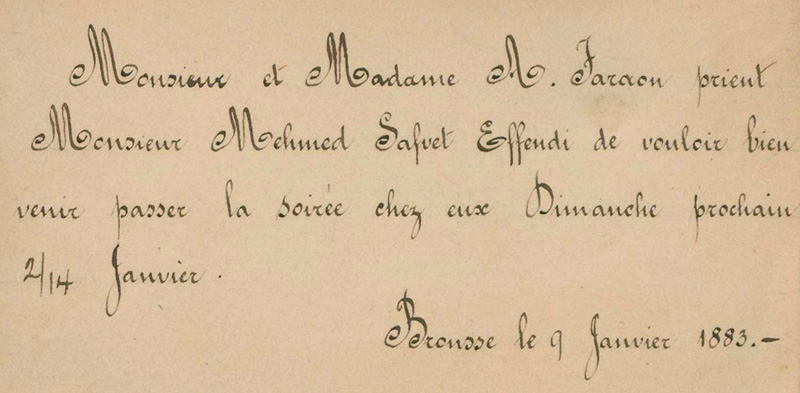 Monsieur et Madame A. Faraon prient
Monsieur Mehmed Safvet Effendi de vouloir bien
venir passer la soirée chez eux Dimanche prochain
2/14 Janvier.
Brousse le 9 Janvier 1883.—